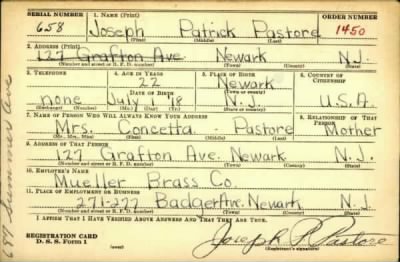 SERIAL NUMBER 1. NAME (Print) ORDER NUMBER
658 Joseph Patrick Pastore 1450
(First) (Middle) (Last)
2. ADDRESS (Print)
127 Grafton Ave. Newark N.J.
(Number and street or R. F. D. number) (Town) (County) (State)
3. TELEPHONE 4. AGE IN YEARS 5. PLACE OF BIRTH 6. COUNTRY OF CITIZENSHIP
22 Newark
DATE OF BIRTH (Town or county)
none July 18 N.J. U.S.A.
(Exchange) (Number) (Mo.) (Day) (Yr.) (State or country)
7. NAME OF PERSON WHO WILL ALWAYS KNOW YOUR ADDRESS 8. RELATIONSHIP OF THAT PERSON
Mrs. Concetta Pastore Mother
(Mr., Mrs., Miss) (First) (Middle) (Last)
9. ADDRESS OF THAT PERSON
127 Grafton Ave. Newark N.J.
(Number and street or R. F. D. number) (Town) (County) (State)
10. EMPLOYER'S NAME
Mueller Brass Co.
11. PLACE OF EMPLOYMENT OR BUSINESS
271-277 Badger Ave. Newark N.J.
(Number and street or R. F. D. number) (Town) (County) (State)
I AFFIRM THAT I HAVE VERIFIED ABOVE ANSWERS AND THAT THEY ARE TRUE.
REGISTRATION CARD
D. S. S. Form 1
Joseph P. Pastore
(Registrant's signature)
687 Summer Ave